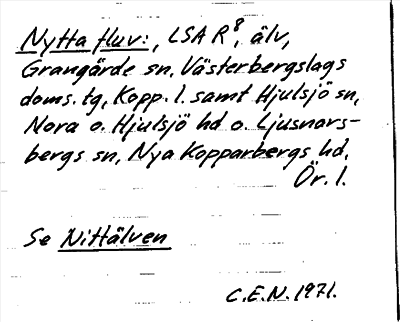 Nytta fluv:, LSA R8, älv,
Grangärde sn, Västerbergslags
doms. tg, Kopp. l. samt Hjulsjö sn,
Nora o. Hjulsjö hd o. Ljusnars-
bergs sn, Nya Kopparbergs hd,
Ör. l.
Se Nittälven
C.E.N. 1971.